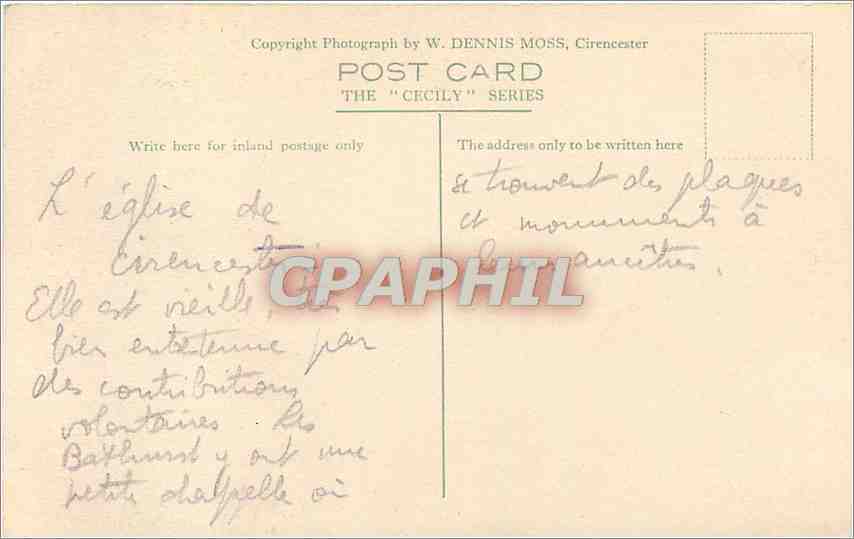 Copyright Photograph by W. DENNIS MOSS, Cirencester
POST CARD
THE "CECILY" SERIES
Write here for inland postage only
The address only to be written here
L'église de
Cirencester.
Elle est vieille, très
bien entretenue par
des contributions
volontaires. Les
Bathurst y ont une
petite chappelle où
se trouvent des plaques
et monuments à
leurs ancêtres.
CPAPHIL